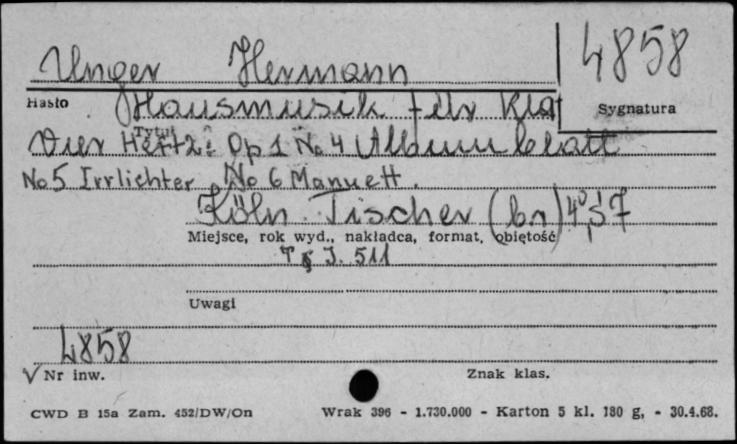 Unger Hermann
4858
Hasło
Hausmusik für Kla
Sygnatura
Tytuł
vier Heft 2: Op 1 No 4 Albumblatt
No 5 Irrlichter No 6 Manuett.
Köln. Tischer (br) 4°, S 7
Miejsce, rok wyd., nakładca, format, objętość
T & J. 511
Uwagi
4858
√ Nr inw.
Znak klas.
CWD B 15a Zam. 452/DW/On
Wrak 396 - 1.730.000 - Karton 5 kl. 180 g, - 30.4.68.